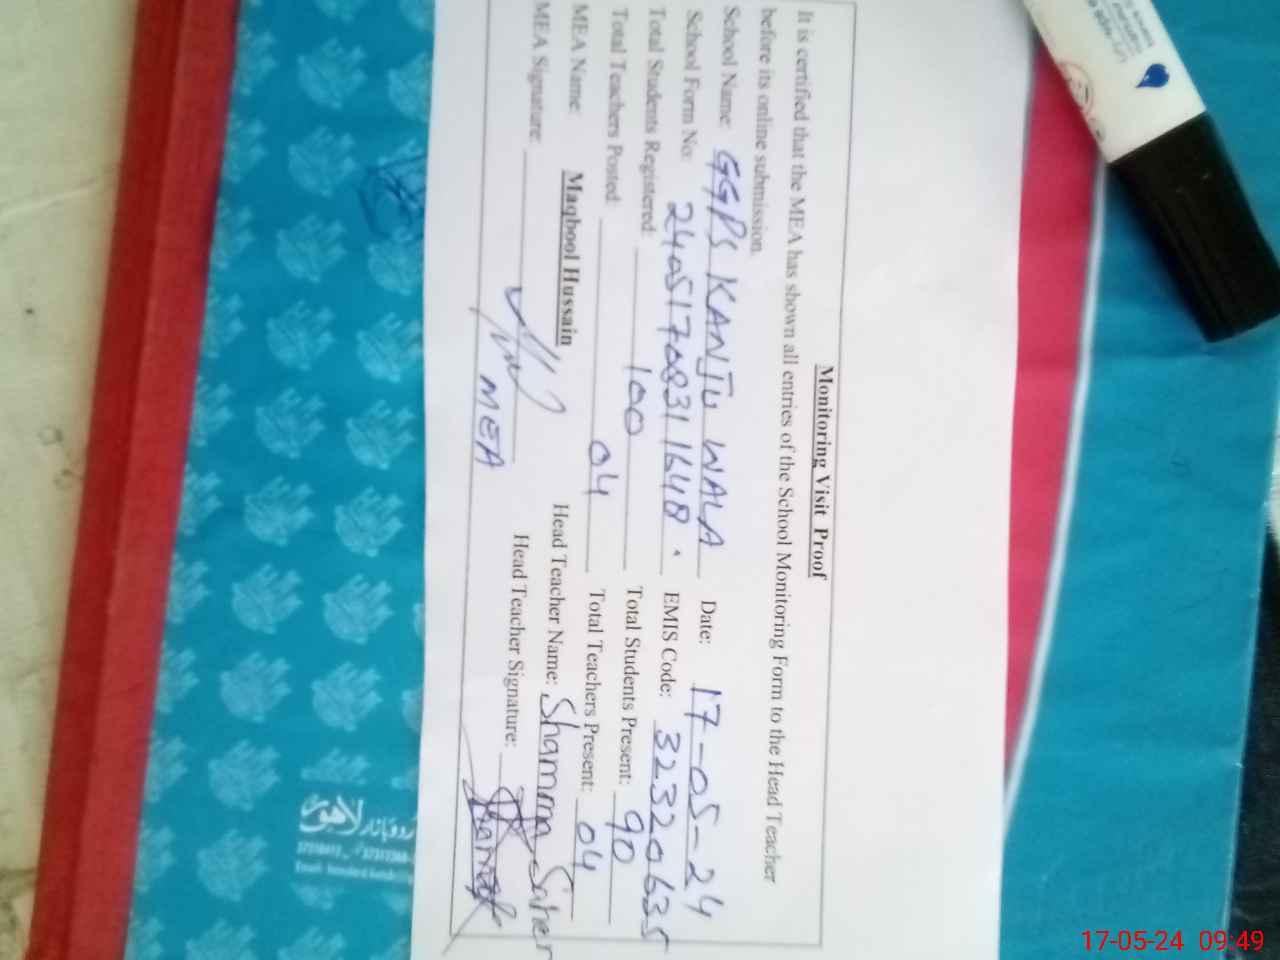 Monitoring Visit Proof
It is certified that the MEA has shown all entries of the School Monitoring Form to the Head Teacher
before its online submission.
School Name: GGPS KANJU WALA Date: 17-05-24
School Form No: 24051708311648. EMIS Code: 32320635
Total Students Registered: 100 Total Students Present: 90
Total Teachers Posted: 04 Total Teachers Present: 04
MEA Name: Maqbool Hussain Head Teacher Name: Shamma Saher
MEA Signature: Head Teacher Signature:
MEA
لاہور
17-05-24 09:49